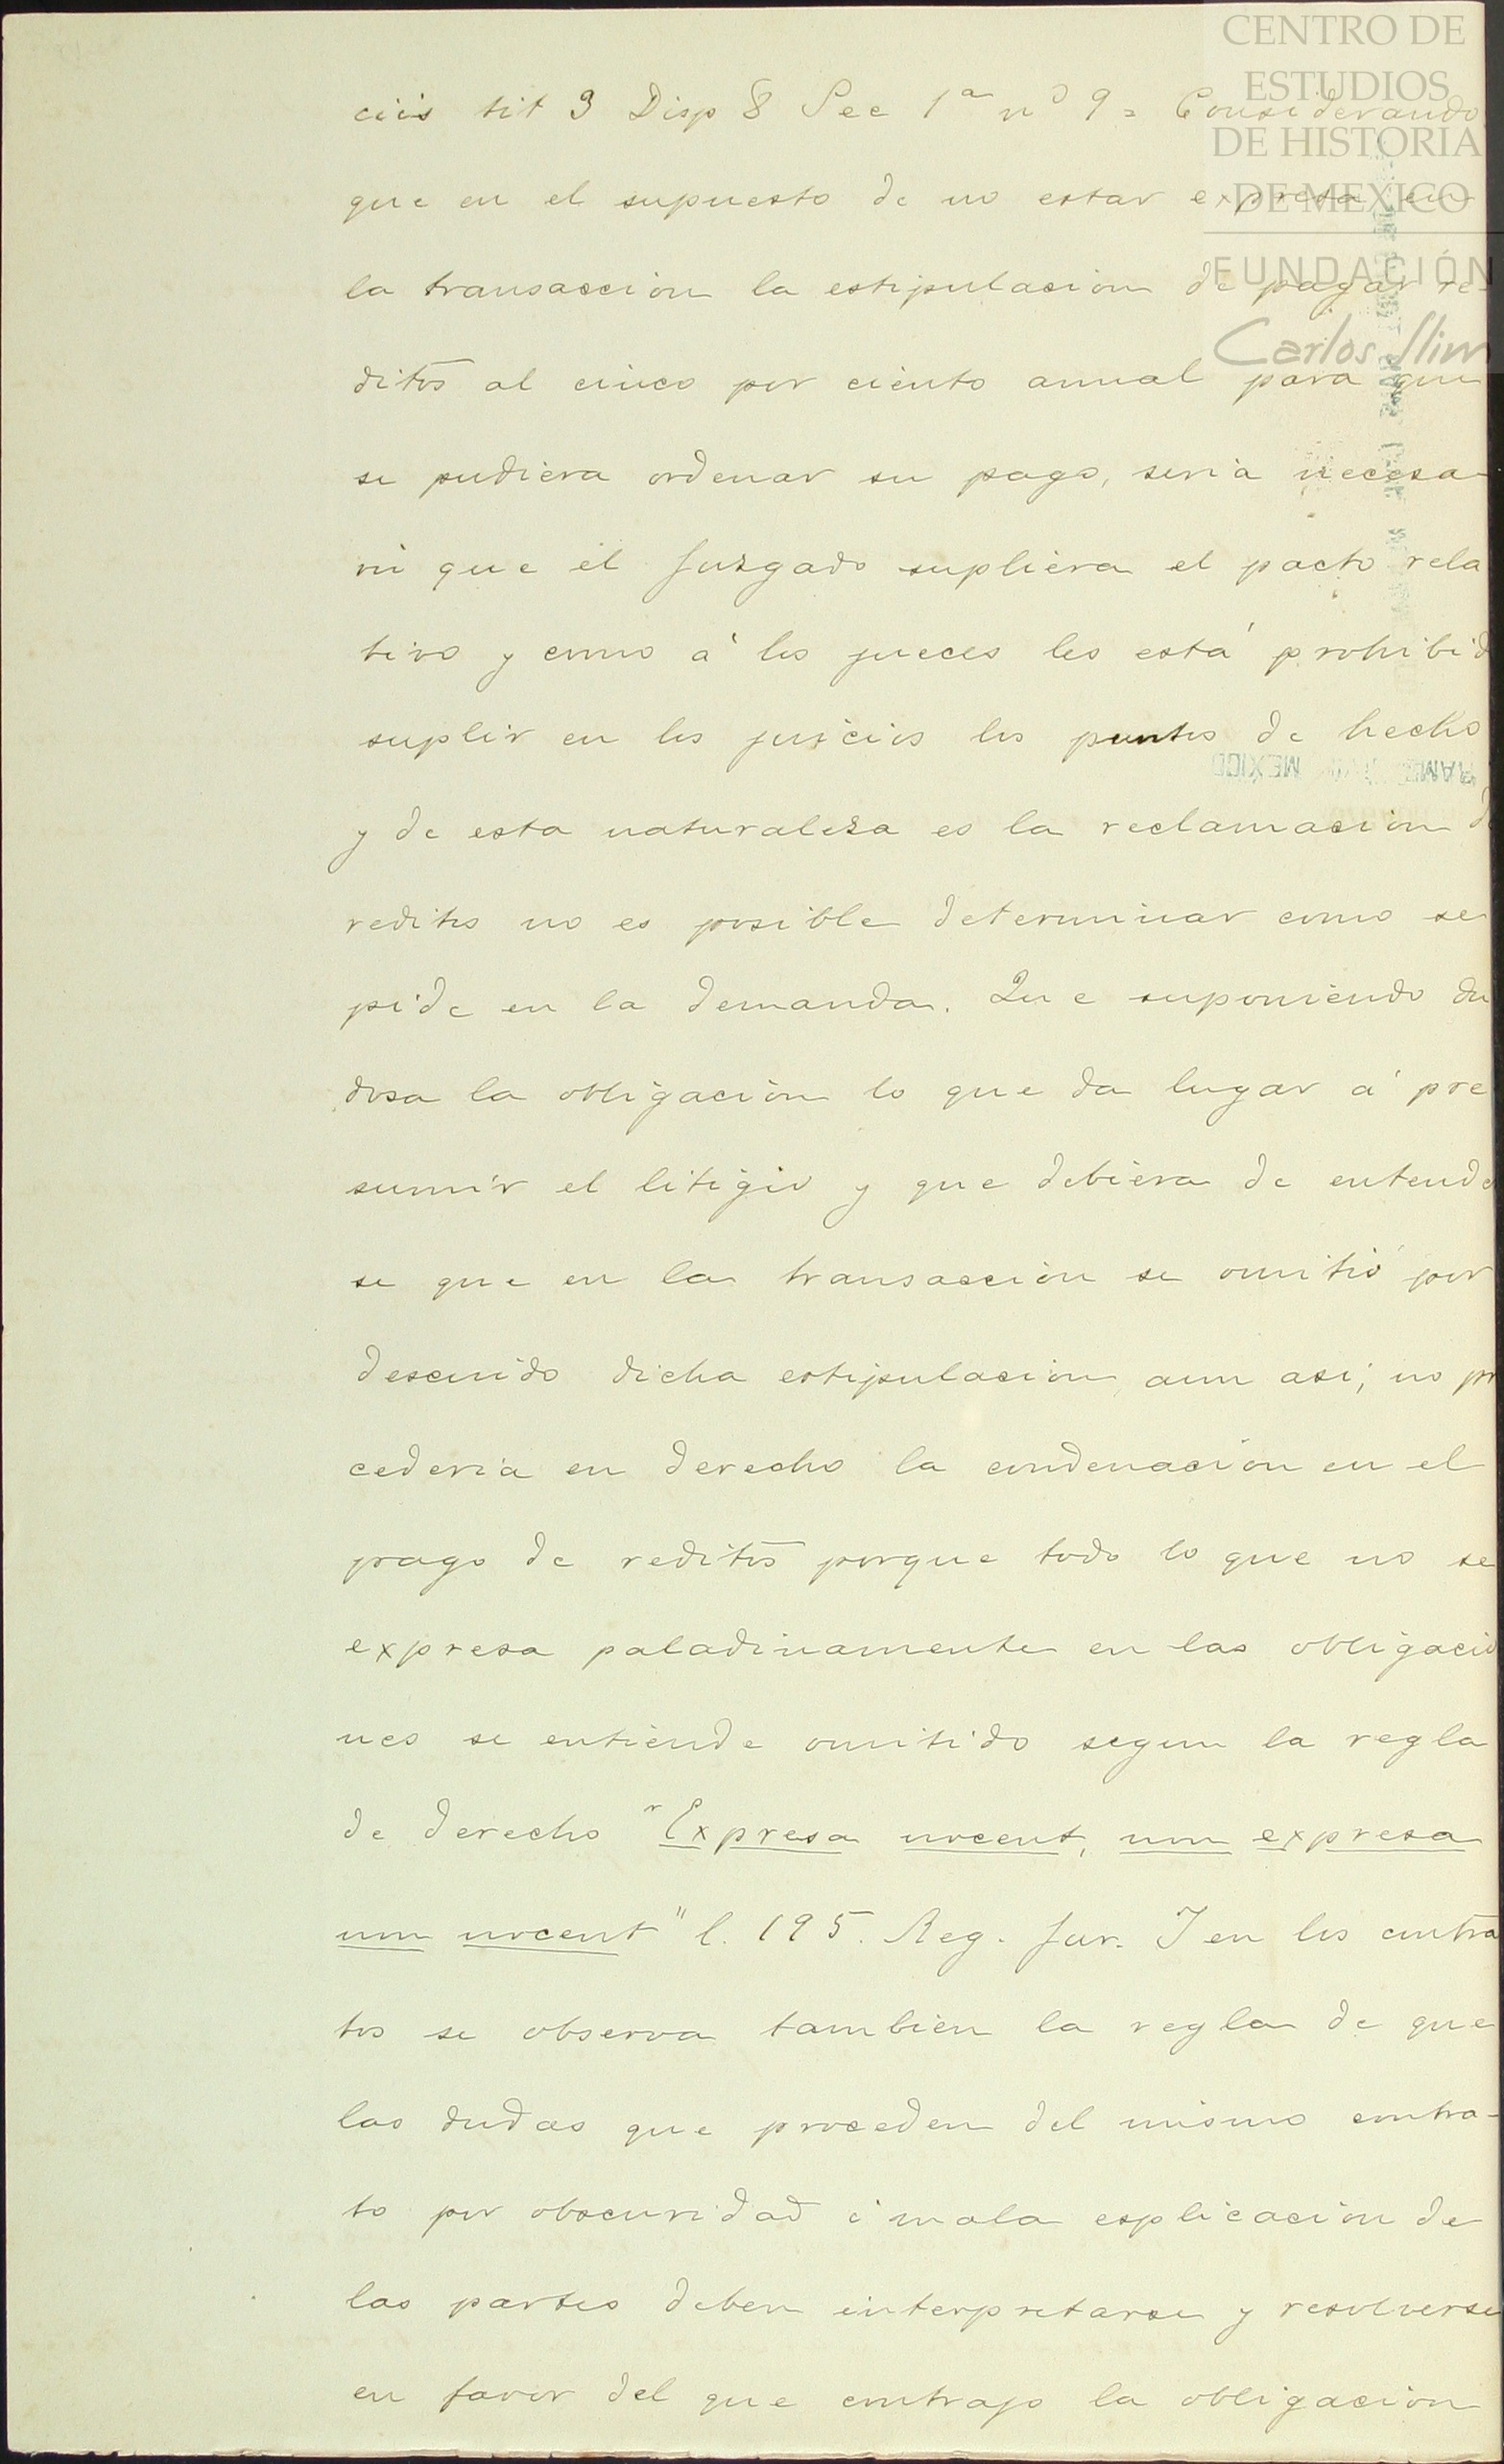 CENTRO DE
ESTUDIOS
DE HISTORIA
DE MEXICO
FUNDACIÓN
Carlos Slim
ciis tit 3 Disp 8 Sec 1ª nº 9 = Considerando
que en el supuesto de no estar expresa en
la transaccion la estipulacion de pagar re-
ditos al cinco por ciento anual para que
se pudiera ordenar su pago, seria necesa-
rio que el Juzgado supliera el pacto rela
tivo y como á los jueces les está prohibid
suplir en los juicios los puntos de hecho
MEXICO
y de esta naturaleza es la reclamacion d
reditos no es posible determinar como se
pide en la demanda. Que suponiendo du
dosa la obligacion lo que da lugar á pre
sumir el litigio y que debiera de entende
se que en la transaccion se omitió por
descuido dicha estipulacion, aun asi, no pr
cederia en derecho la condenacion en el
pago de reditos porque todo lo que no se
expresa paladinamente en las obligacio
nes se entiende omitido segun la regla
de derecho "Expresa nocent, non expresa
non nocent" l. 195. Reg. Jur. I en los contra
tos se observa tambien la regla de que
las dudas que proceden del mismo contra-
to por obscuridad ó mala esplicacion de
las partes deben interpretarse y resolverse
en favor del que contrajo la obligacion